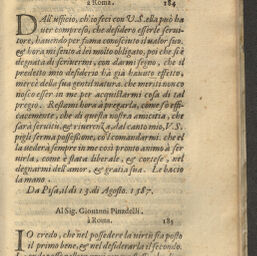 à Roma. 184
DAll'ufficio, ch'io feci con V.S. ella può ha
uer compreso, che desidero esserle serui-
tore, hauendo per fama conosciuto il ualor suo,
& hora mi sento à lei molto obligato, poi che si è
degnata di scriuermi, con darmi segno, che il
predetto mio desiderio hà già hauuto effetto,
mercè della sua gentil natura. che meriti non co
nosco esser in me per acquistarmi cosa di tal
pregio. Restami hora à pregarla, come fò effi-
cacemente, che di questa nostra amicitia, che
sarà seruitù, & riuerenza, dal canto mio, V.S.
pigli ferma possessione, col comandarmi. che el
la uederà sempre in me così pronto animo à ser
uirla, come è stata liberale, & cortese, nel
degnarmi dell'amor, & gratia sua. Le bacio
la mano.
Da Pisa, il dì 13. di Agosto. 1587.
Al Sig. Giouanni Pinadelli.
à Roma. 185
IO credo, che nel possedere la uirtù sia posto
il primo bene, & nel desiderarla il secondo.